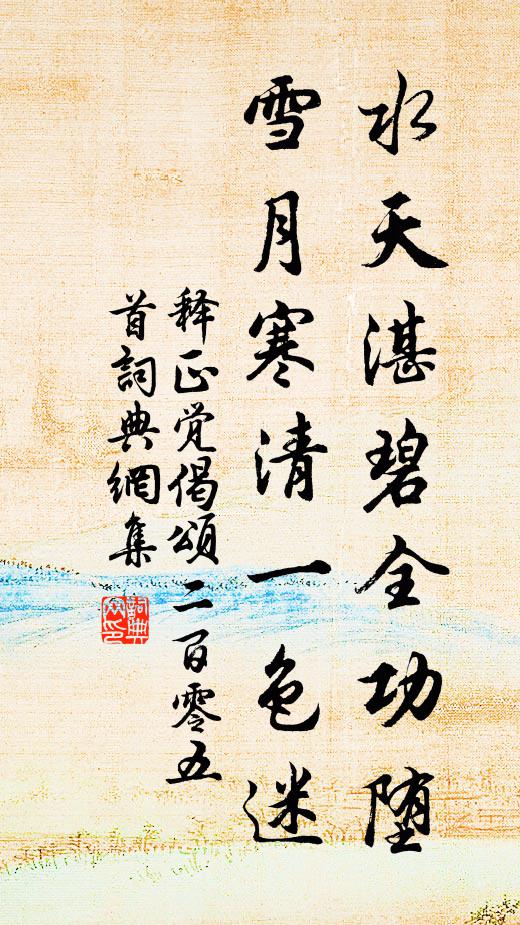 水天湛碧全功堕
雪月寒清一色迷
释正觉偈頌二百零五
首詞典網集